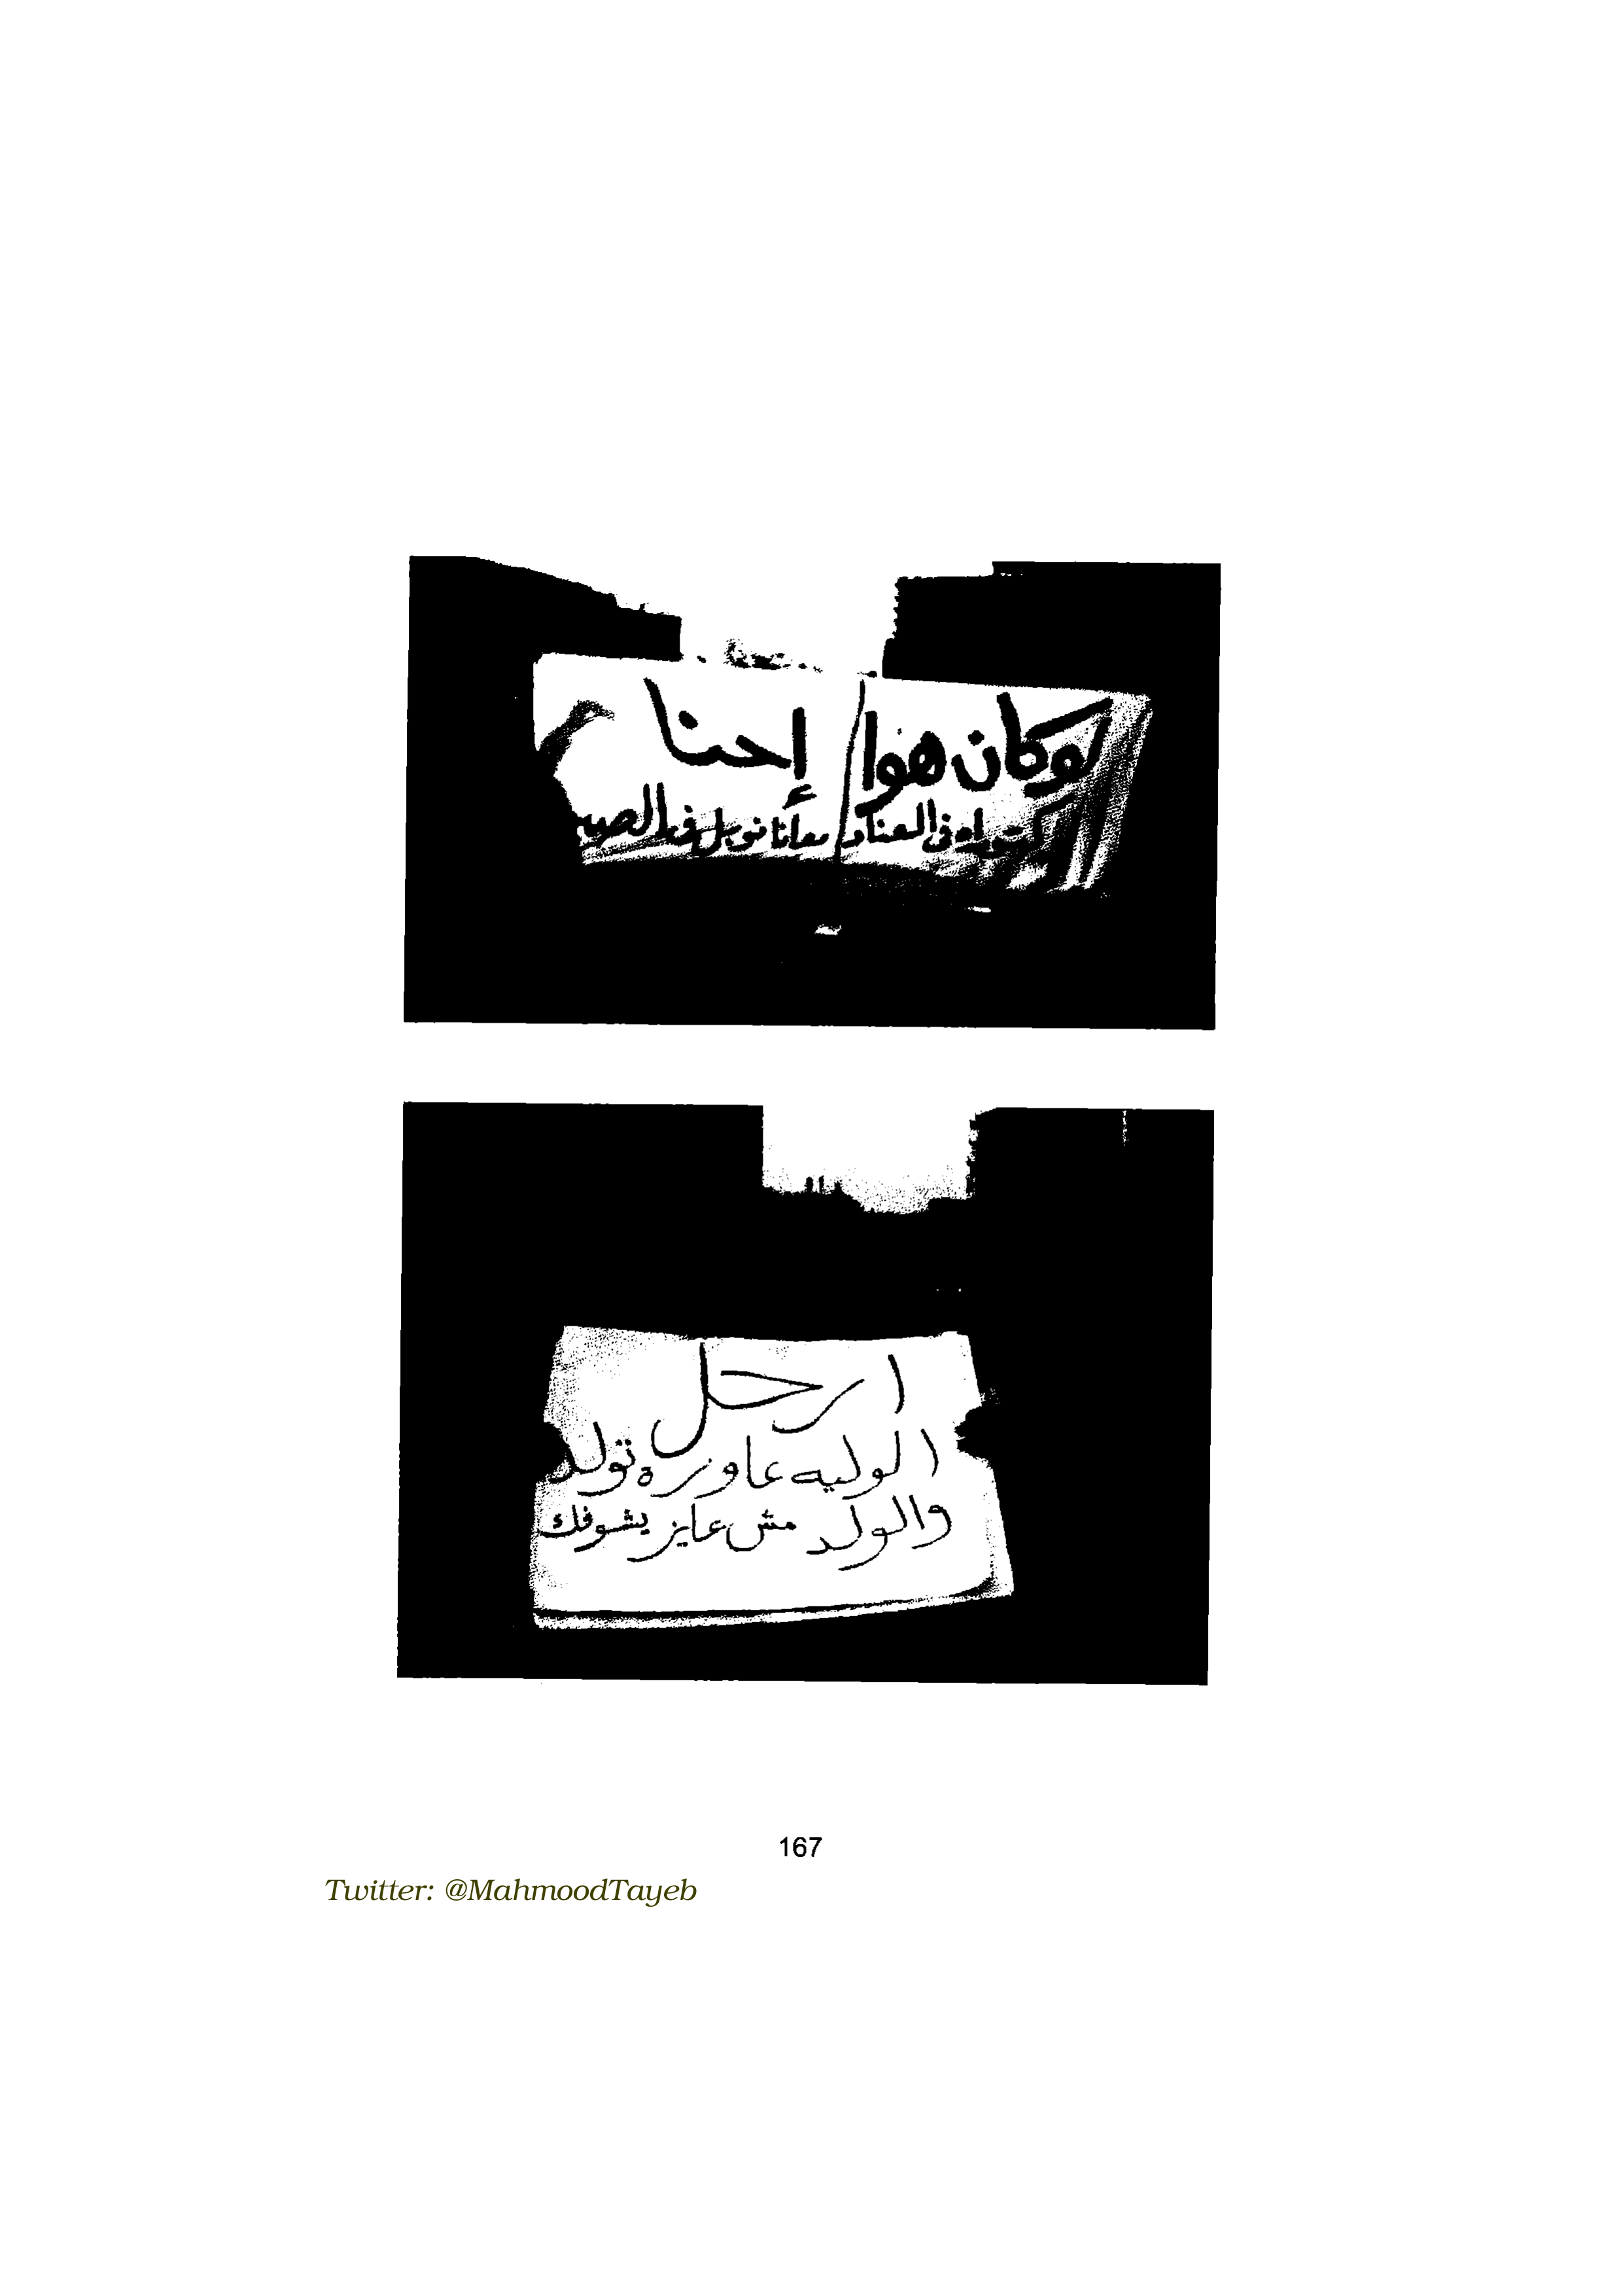 لو كان هوا إحنا
في العناد معانا نوبل في الصبر
ارحل
الوليه عاوزة تولد
والولد مش عايز يشوفك
167
Twitter: @MahmoodTayeb